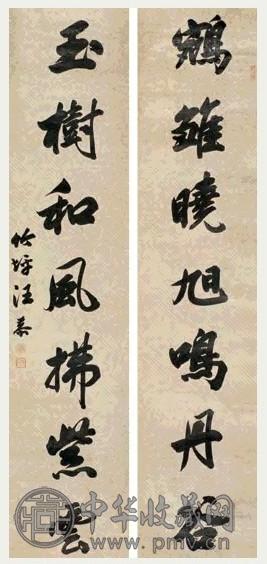 鵷雛曉旭鳴丹
玉樹和風紫雲
竹坪汪恭
中华收藏网
www.pmv.cn